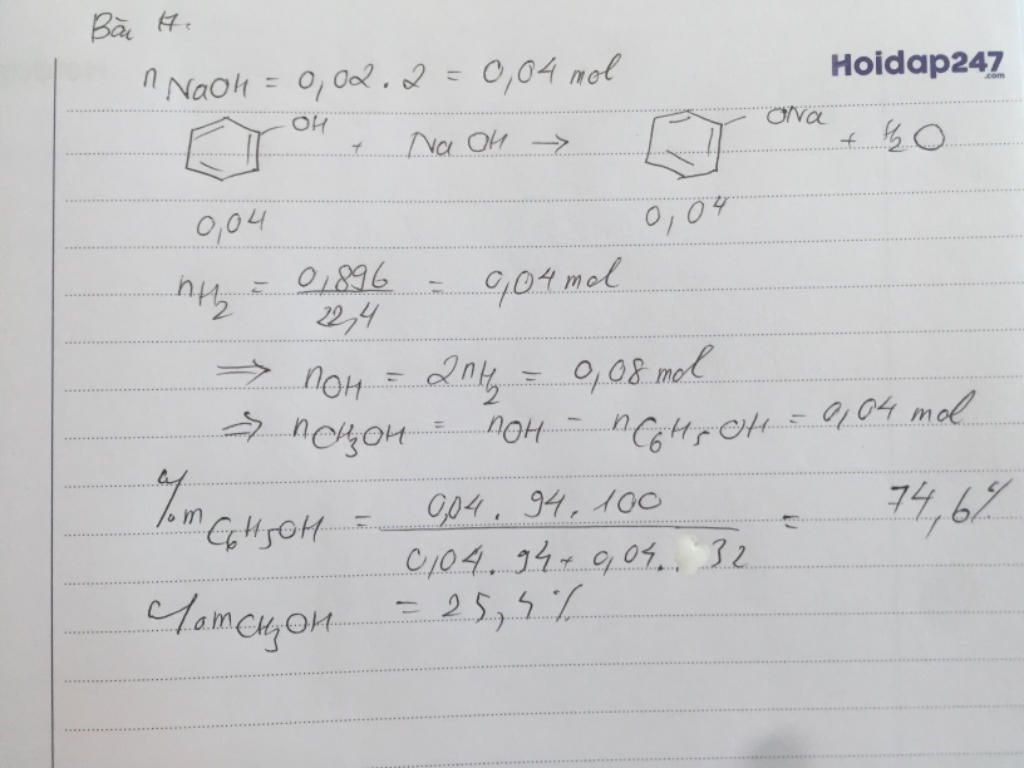 Bài 17.
Hoidap247
.com
nNaOH = 0,02 . 2 = 0,04 mol
OH + NaOH → ONa + H2O
0,04 0,04
nH2 = 0,896/22,4 = 0,04 mol
⇒ nOH = 2nH2 = 0,08 mol
⇒ nCH3OH = nOH - nC6H5OH = 0,04 mol
%mC6H5OH = 0,04 . 94 . 100 / 0,04 . 94 + 0,04 . 32 = 74,6%
%mCH3OH = 25,4%